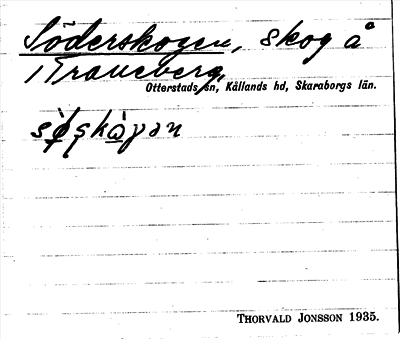 Söderskogen, skog å
/ Traneberg,
Otterstads sn, Kållands hd, Skaraborgs län.
THORVALD JONSSON 1935.